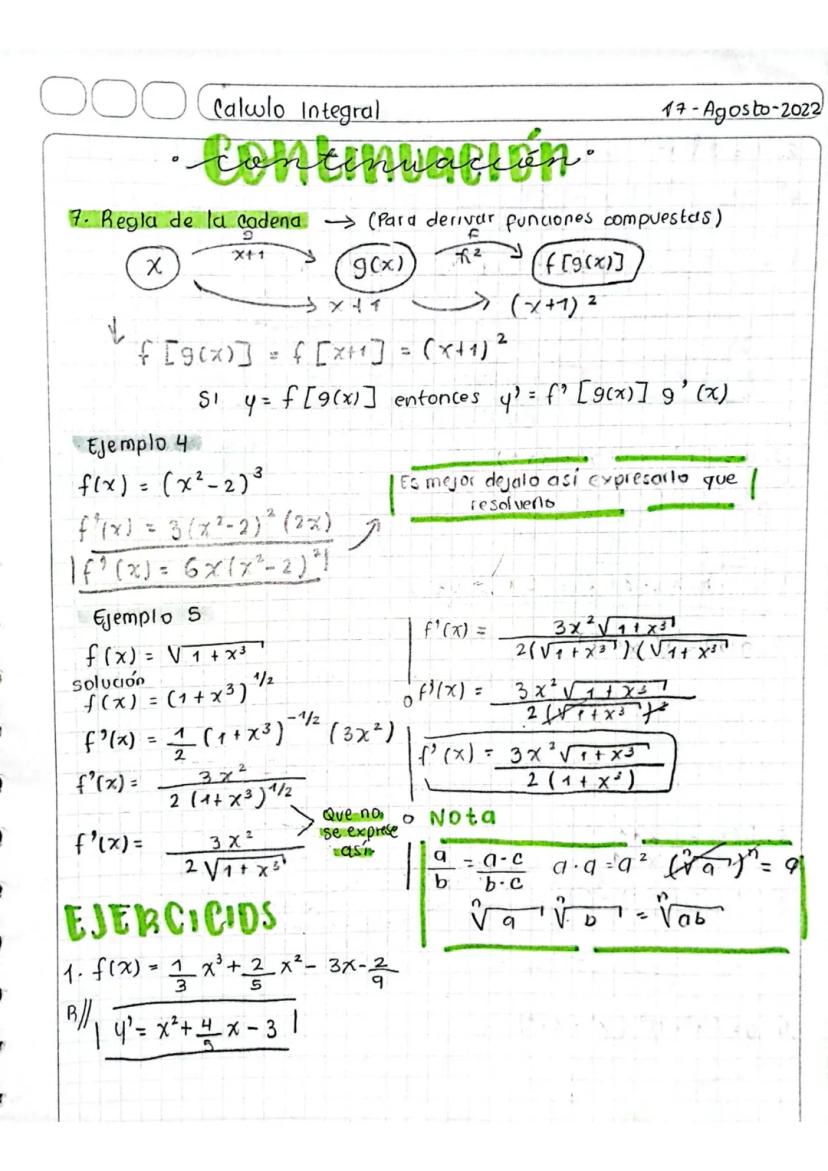 Calculo Integral 17-Agosto-2022
• Continuación •
7. Regla de la cadena → (Para derivar funciones compuestas)
g f
x x+1 g(x) x² f[g(x)]
x+1 (x+1)²
f[g(x)] = f[x+1] = (x+1)²
Si y = f[g(x)] entonces y' = f'[g(x)] g'(x)
Ejemplo 4
f(x) = (x²-2)³
f'(x) = 3(x²-2)²(2x)
f'(x) = 6x(x²-2)²
Es mejor dejalo así expresarlo que
resolverlo
Ejemplo 5
f(x) = √1+x³
solución
f(x) = (1+x³)^1/2
f'(x) = 1/2 (1+x³)^-1/2 (3x²)
f'(x) = 3x² / 2(1+x³)^1/2
f'(x) = 3x² / 2√1+x³
Que no
se exprese
así
f'(x) = 3x²√1+x³ / 2(√1+x³)(√1+x³
f'(x) = 3x²√1+x³ / 2(√1+x³)²
f'(x) = 3x²√1+x³ / 2(1+x³)
Nota
a/b = a·c/b·c a·a = a² (ⁿ√a)ⁿ = a
ⁿ√a ⁿ√b = ⁿ√ab
EJERCICIOS
1. f(x) = 1/3 x³ + 2/5 x² - 3x - 2/9
R// y' = x² + 4/5 x - 3